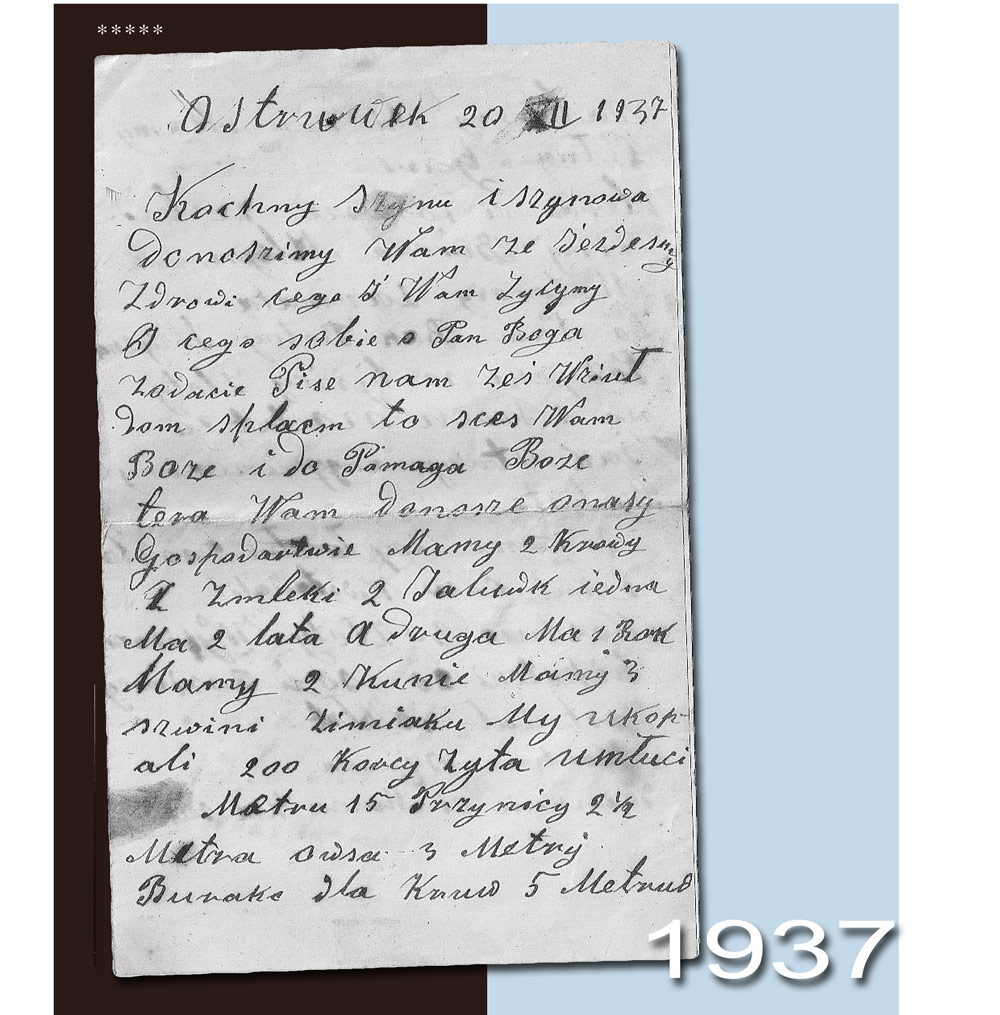 *****
Ostruwek 20 XII 1937
Kochny szynu i szynowa
donoszimy Wam ze jezdeszmy
Zdrowi cego i Wam zycymy
O cego sobie o Pan Boga
zodacie Pise nam ześ Wziuł
dom spłacm to sces Wam
Boze i do Pamaga Boze
tera Wam donosze onaszy
Gospodartwie Mamy 2 Krowy
Z Zmleki 2 Jaluwk iedna
Ma 2 lata A druga Ma 1 Rok
Mamy 2 Kunie Mamy 3
szwini zimiaku My ukop-
ali 200 Korcy Zyta umłuci
Metru 15 Przynicy 2 1/2
Metra owsa 3 Metry
Burake dla Kruw 5 Metruw
1937